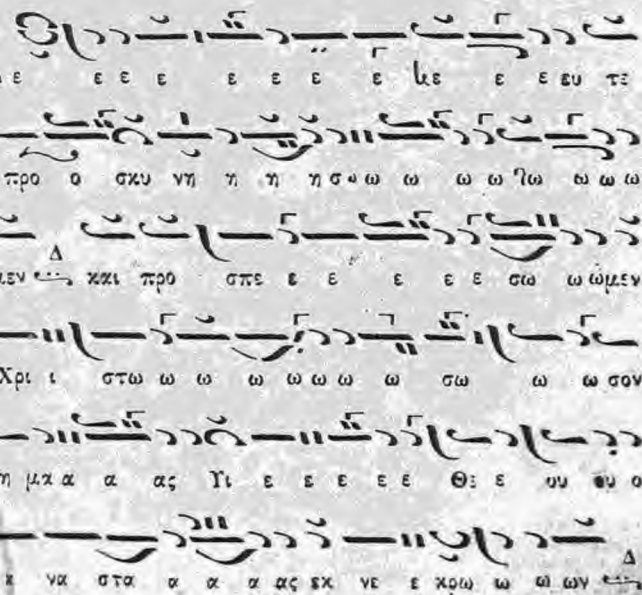 ε ε ε ε ε ε ε ε κε ε ε ευ τε
προ ο σκυ νη η η η σω ω ω ω ω ω ω ω ω
μεν Δ και προ σπε ε ε ε ε ε σω ω ωμεν
Χρι ι στω ω ω ω ω ω ω ω σω ω ω σον
η μα α α ας Υι ε ε ε ε ε Θε ε ου ου ο
να στα α α α ας εκ νε ε κρω ω ω ων Δ